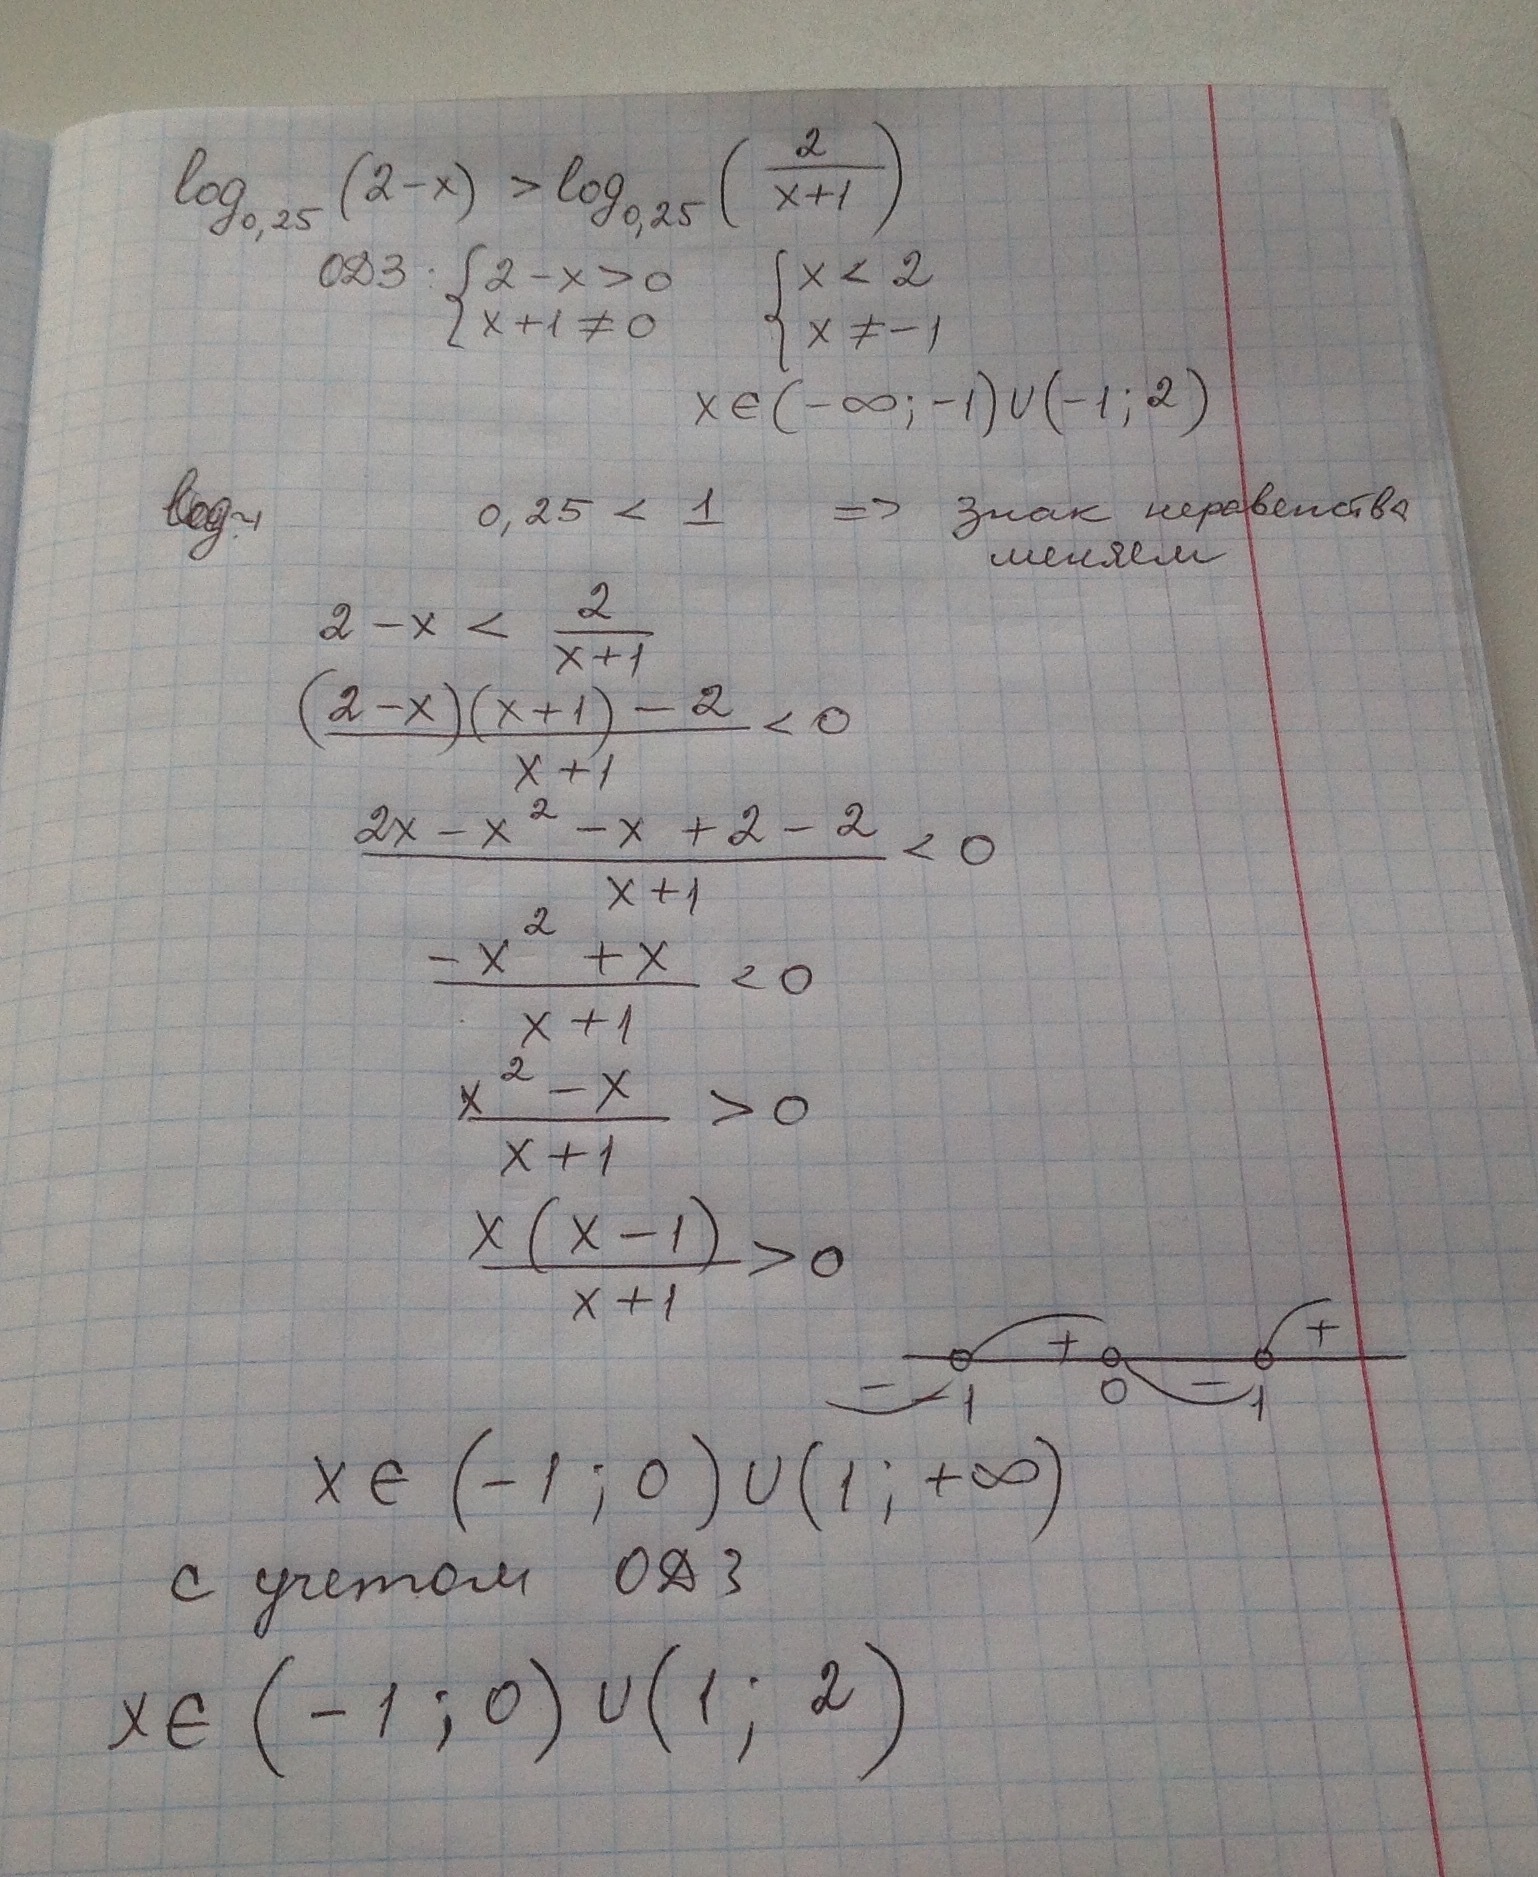 log₀,₂₅ (2-x) > log₀,₂₅ (2/(x+1))
ОДЗ: {2-x>0 {x < 2
{x+1≠0 {x ≠ -1
x∈(-∞;-1)∪(-1;2)
0,25 < 1 => знак неравенства
меняем
2-x < 2/(x+1)
((2-x)(x+1)-2)/(x+1) < 0
(2x-x²-x+2-2)/(x+1) < 0
(-x²+x)/(x+1) < 0
(x²-x)/(x+1) > 0
x(x-1)/(x+1) > 0
- + - +
-1 0 1
x∈(-1;0)∪(1;+∞)
с учетом ОДЗ
x∈(-1;0)∪(1;2)